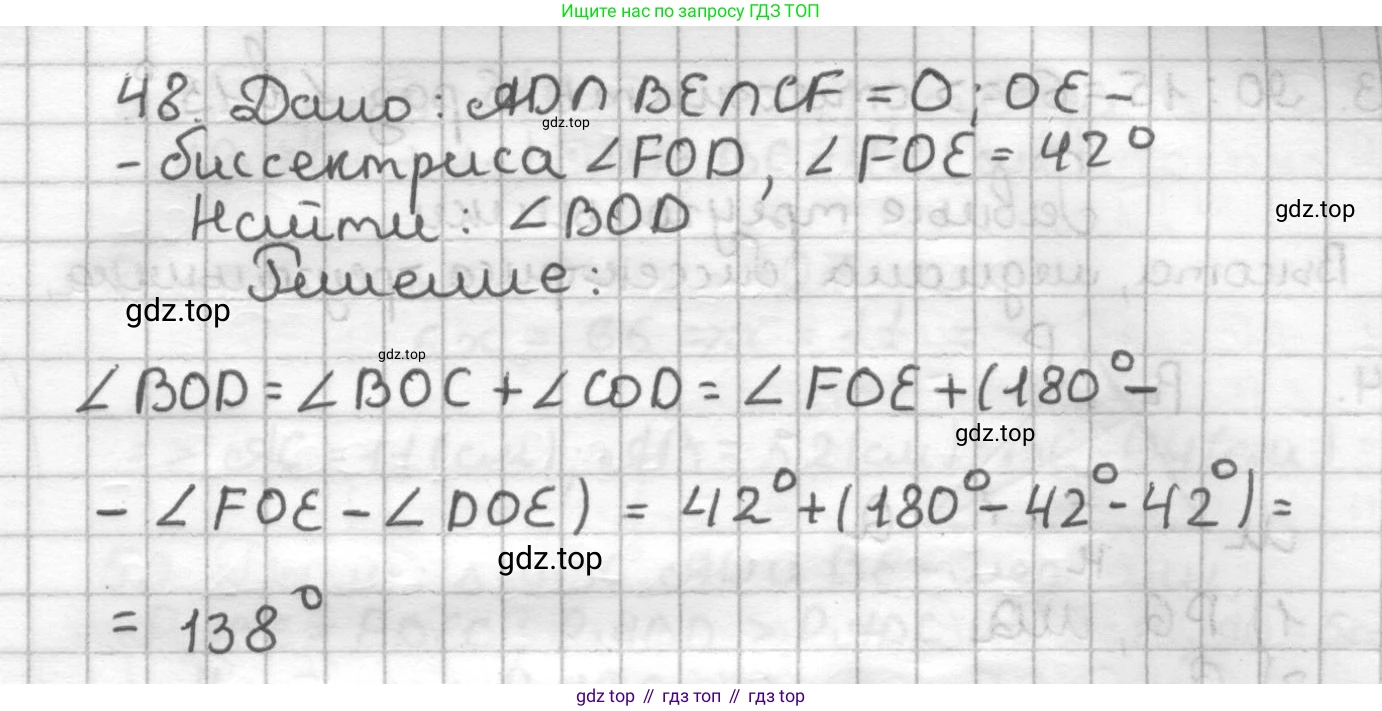 Ищите нас по запросу ГДЗ ТОП
48. Дано: AD∩BE∩CF = O; OE –
gdz.top
– биссектриса ∠FOD, ∠FOE = 42°
gdz.top
Найти: ∠BOD
Решение:
gdz.top
gdz.top
∠BOD = ∠BOC + ∠COD = ∠FOE + (180° –
gdz.top
– ∠FOE – ∠DOE) = 42° + (180° – 42° – 42°) =
gdz.top
= 138°
gdz top // гдз топ // gdz top